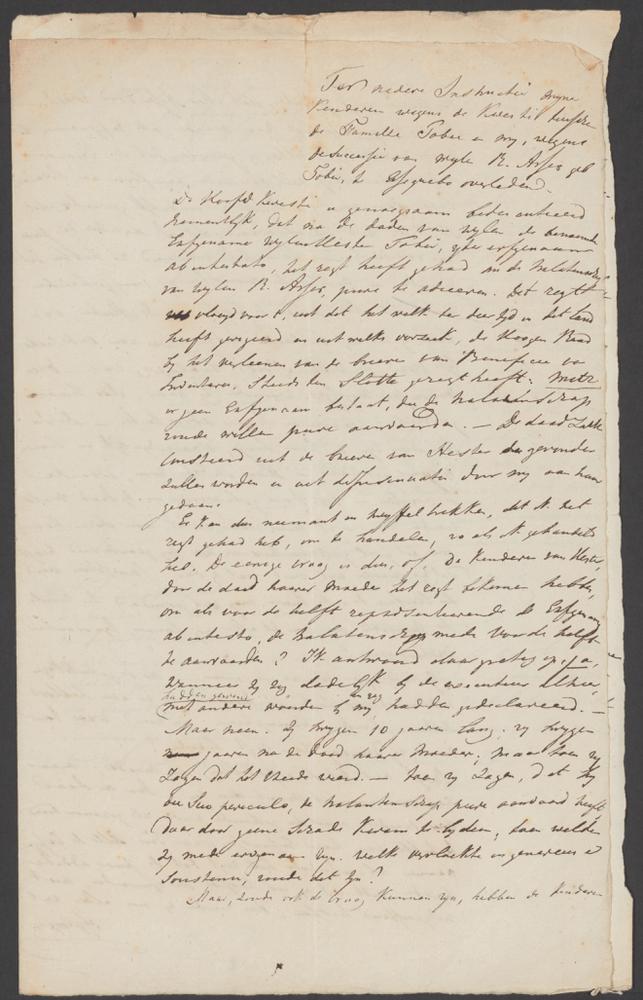 Ter nadere Instructie myne
Kinderen wegens de Kwestie tusschen
de Familie Tobie en my, wegens
de successie van wyle B. Asser geb
Tobie, te Essequebo overleden.
De Hoofd Kwestie is genoegsaam
namentlyk, dat na de dood van wylen de benoemde
Erfgename wylen Hester Tobie, yder erfgenaam
ab intestato, het regt heeft gehad om de nalatenschap
van wylen B. Asser, pure te adieeren. Dit regt
vloeyd voort, uit dat het welk ter dier tyd in dit Land
heeft geregeerd en uit welks oorzaak, de Hoogen Raad
by het verleenen van de brieven van Beneficie van
Inventaris, steeds ten Slotte gezegt heeft: mits
er geen Erfgenaam bestaat, die de nalatenschap
zoude willen pure aanvaarden. — De daad Zaake
Consteerd uit de brieven van Hester die gevonden
zullen worden en uit door my aan hun
gedaan.
Er kan dus niemant in twyffel trekken, dat ik het
regt gehad heb, om te handelen, zo als ik gehandelt
heb. De eenige vraag is dus, of de Kinderen van Hester,
door de dood haarer Moeder het regt bekomen hebben,
om als voor de helft representeerende de Erfgenaam
ab intestato, de nalatenschap mede voor de helft
te aanvaarden? Ik antwoord daar gratis op, ja,
wanneer zy zig dadelyk by de executeur
hadden gevoerd en zig
met andere woorden by my hadden gedeclareerd. —
Maar neen. zy zwygen 10 jaaren lang, zy zwygen
jaaren na de dood haarer Moeder; maar toen zy
Zagen dat het steeds werd. — toen zy Zagen, dat hy
die Suo periculo, de nalatenschap pure aanvaard heeft
daar door geene Schade kwam te lyden, toen wilden
zy mede erfgenaam zyn. welk verlichte en genereuse
Souteneu, zoude dit zyn?
Maar, zoude ook de vraag kunnen zyn, hebben de Kinderen